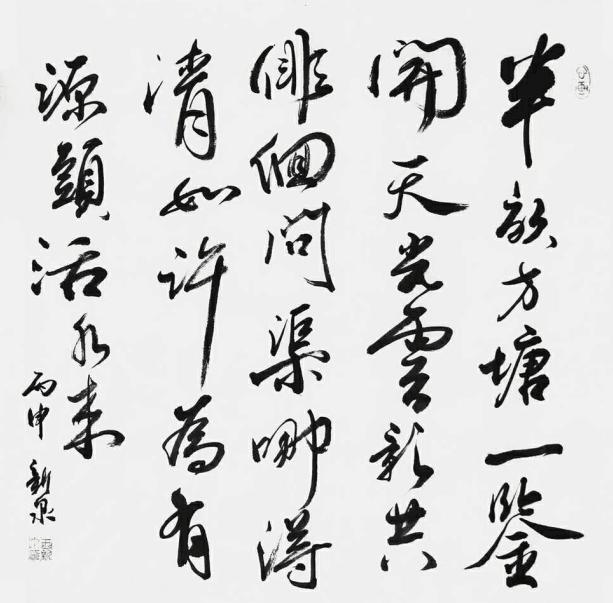 半畝方塘一鑒
開天光雲影共
俳佪問渠哪得
清如許為有
源頭活水來
丙申新泉